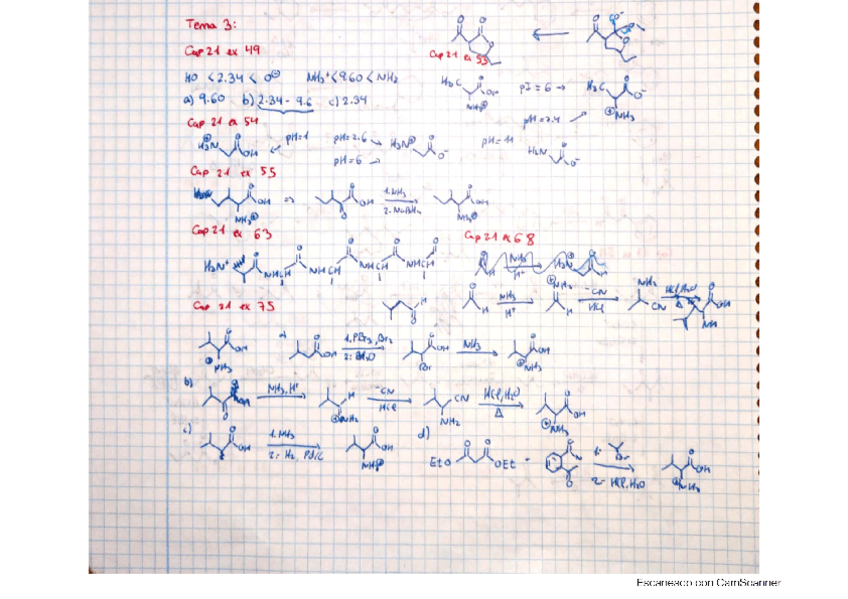 Tema 3:
Cap 21 ex 49
HO < 2.34 < O⊖ NH₃⁺ < 9.60 < NH₂
a) 9.60 b) 2.34 - 9.6 c) 2.34
Cap 21 ex 53
H₃C OH NH₃⊕ pI = 6 → H₃C O⁻ ⊕NH₃
pH = 7.4
pH = 11 H₂N O⁻
Cap 21 ex 54
H₃N⊕ OH pH = 1 pH = 2.6 H₃N⊕ O⁻
pH = 6 →
Cap 21 ex 55
OH NH₃⊕ ⇒ OH O 1. NH₃ 2. NaBH₄ OH NH₃⊕
Cap 21 ex 63
H₃N⁺ O NHCH O NHCH O NHCH O NHCH O
Cap 21 ex 68
O H NH₃ H⁺ ⊕NH₂ H ⁻CN HCl NH₂ CN HCl, H₂O Δ O OH NH
Cap 21 ex 75
O H
O OH ⊕NH₃
a) O OH 1. PBr₃, Br₂ 2. H₂O O OH Br NH₃ O OH ⊕NH₃
b) O NH₃, H⁺ H ⊕NH₂ ⁻CN HCl CN NH₂ HCl, H₂O Δ O OH ⊕NH₃
c) O OH 1. NH₃ 2. H₂, Pd/C O OH NH₃⊕
d) EtO O O OEt O N O 1. Br 2. HCl, H₂O O OH ⊕NH₃
Escaneado con CamScanner